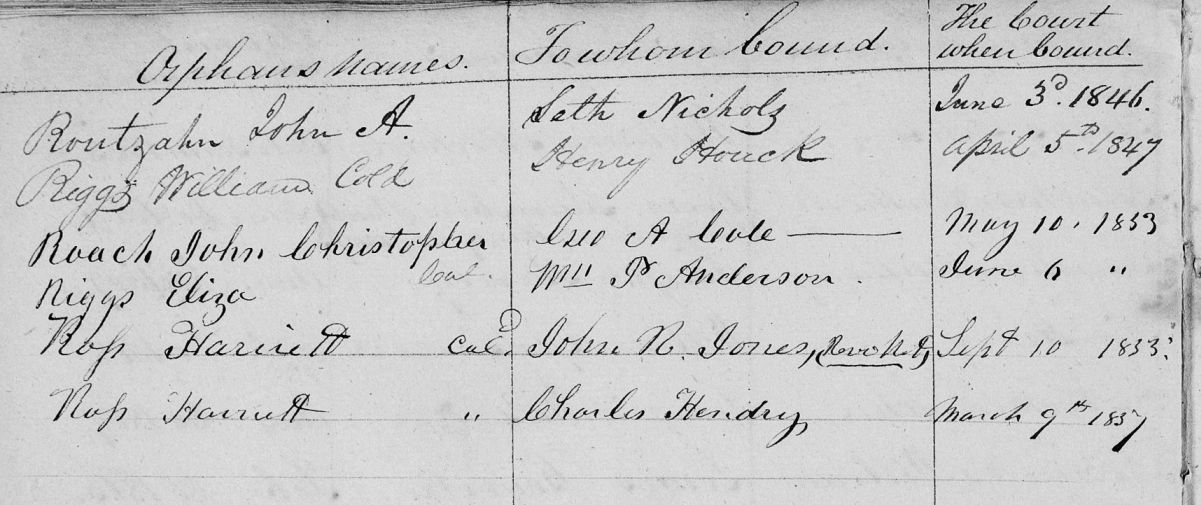 Orphans names. To whom bound. The Court when bound.
Routzahn John A. Seth Nicholz June 3d. 1846.
Riggs William Cold Henry Houck April 5th. 1847
Roach John Christopher Geo A Cole — May 10. 1853
Riggs Eliza Col. Wm P Anderson. June 6 "
Ross Harriett Col'd John R. Jones, Sept 10 1853.
Ross Harriett " Charles Hendry March 9th 1857